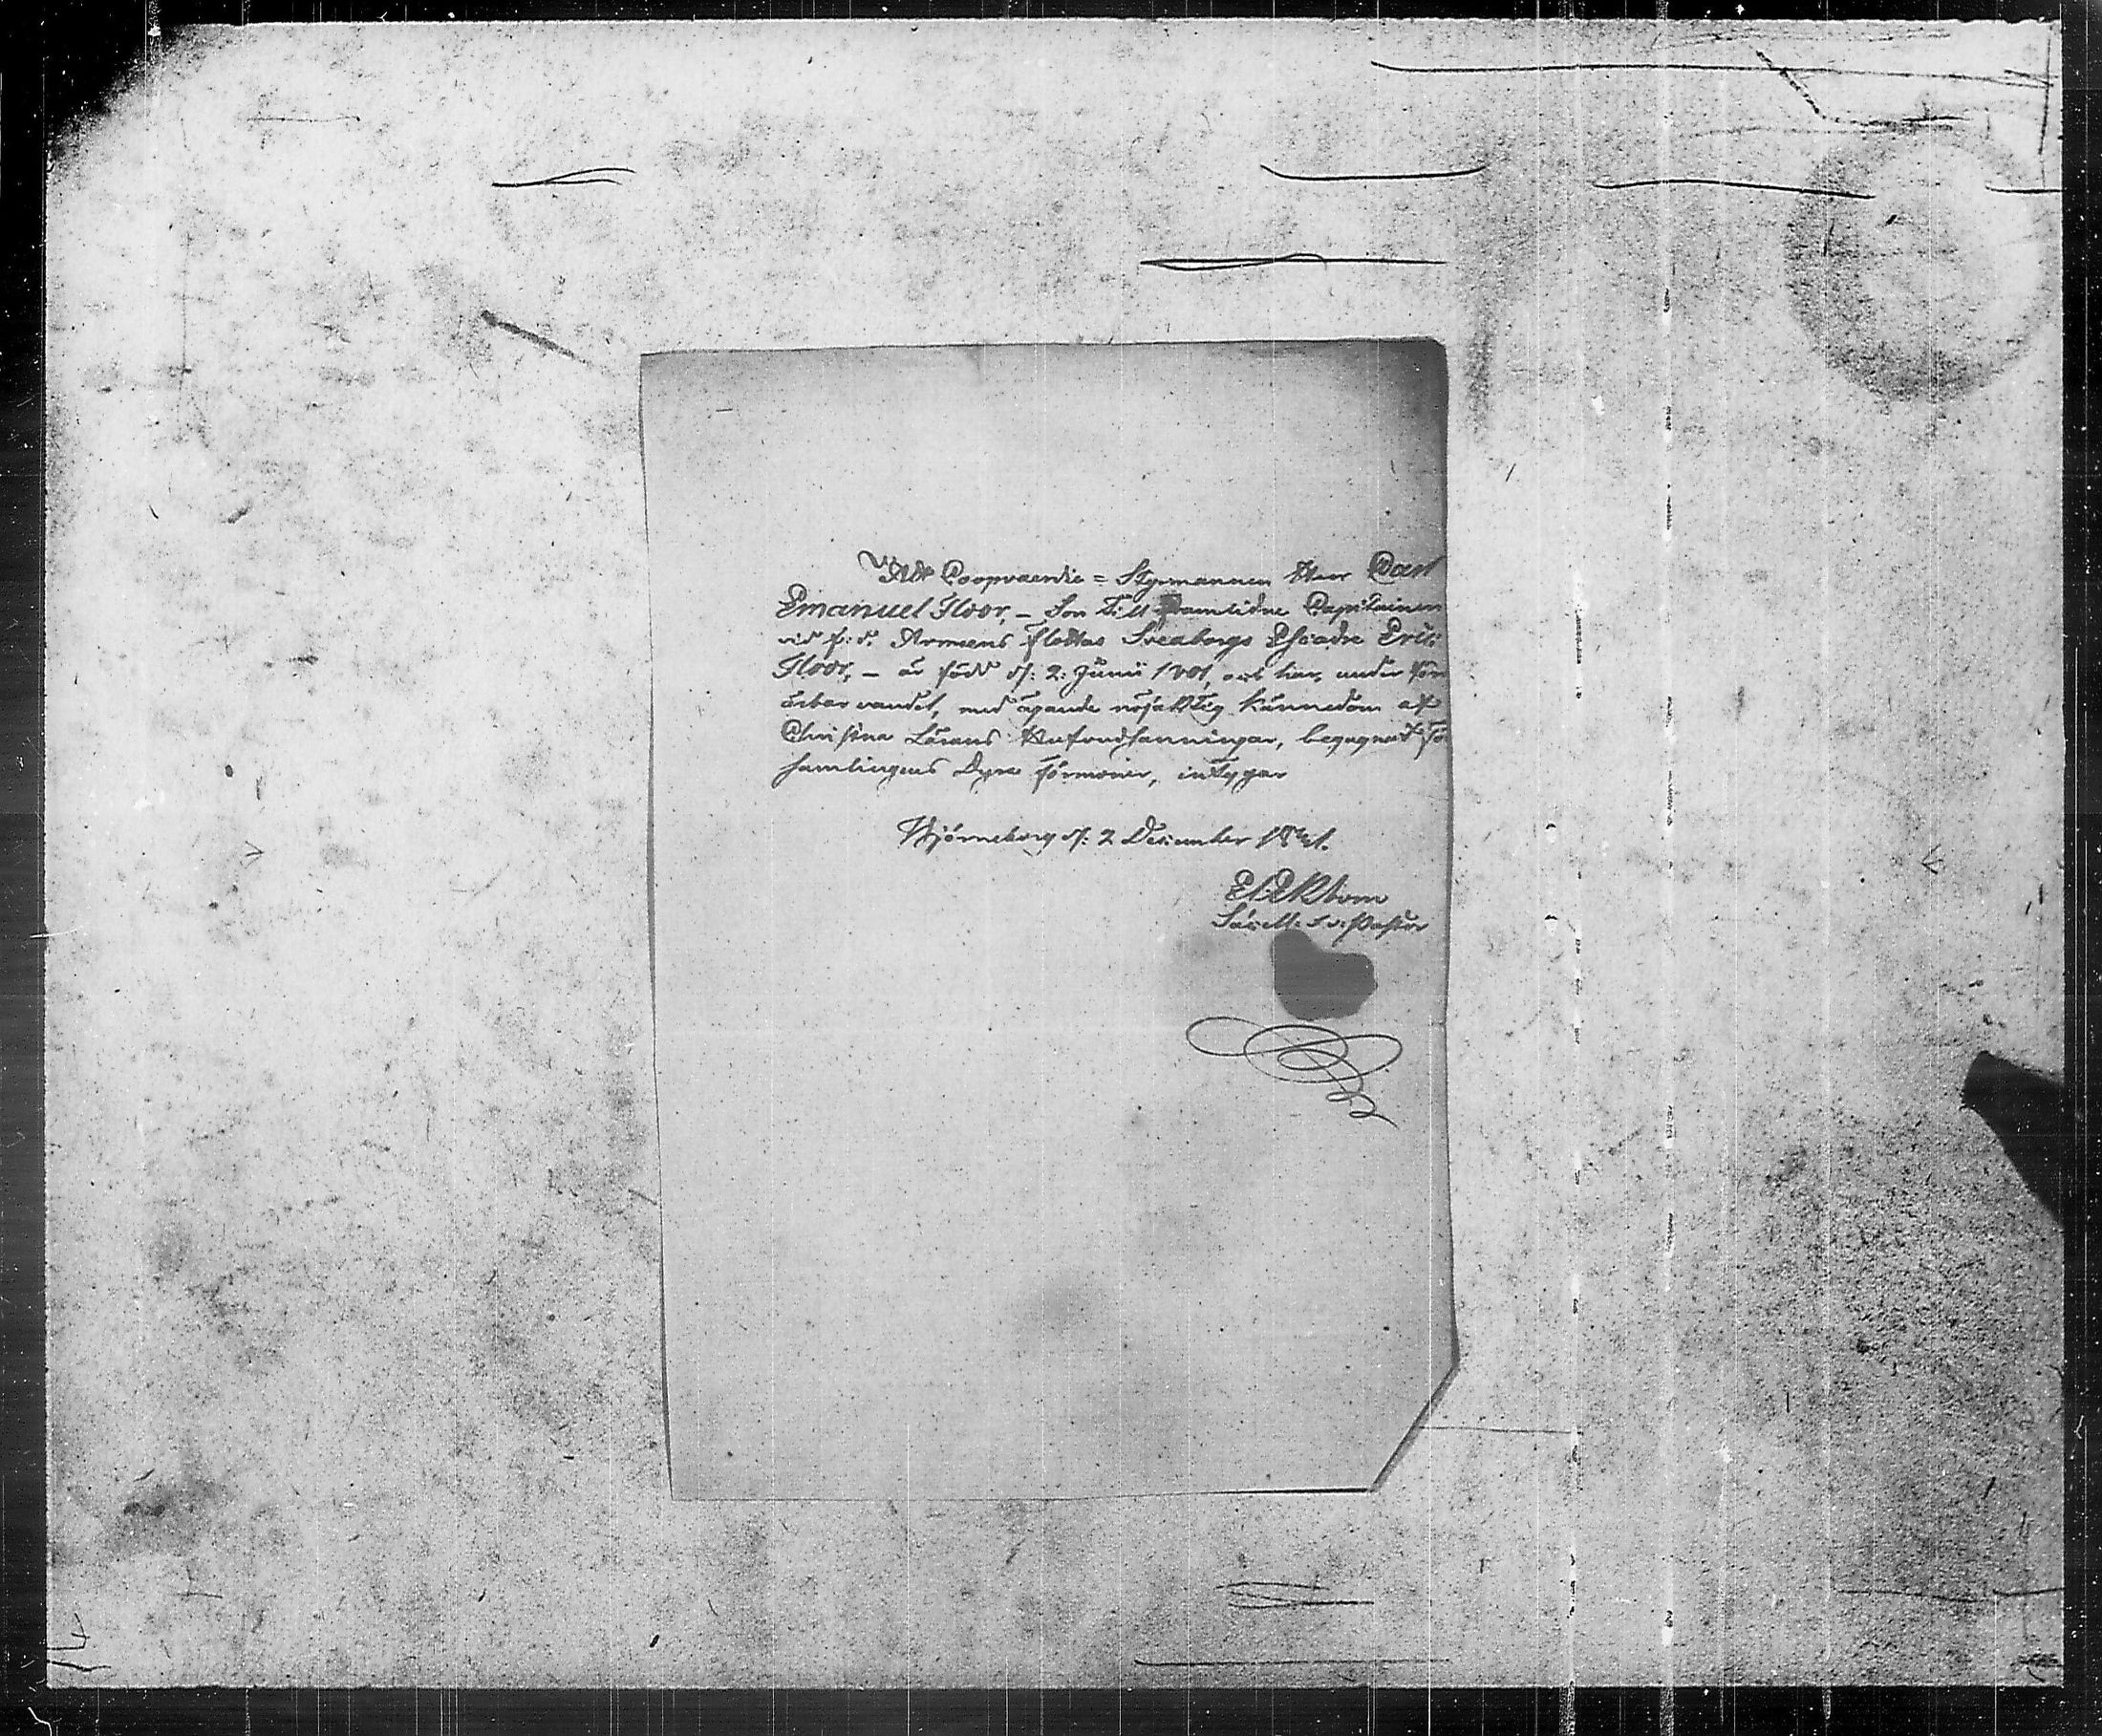 Att Coopvaerdie = Styrmannen Herr Carl
Emanuel Floor, – Son till framlidne Capitainen
vid f: d. Armeens flottas Sveaborgs Escadre Eric
Floor, – är född d: 2: Junii 1801, och har, under för
ärbar vandel, med ägande nöjaktig kännedom af
Christna Lärans Hufvudsanningar, begagnat för
samlingens Dyra förmoner, intygar
Björneborg d: 2 December